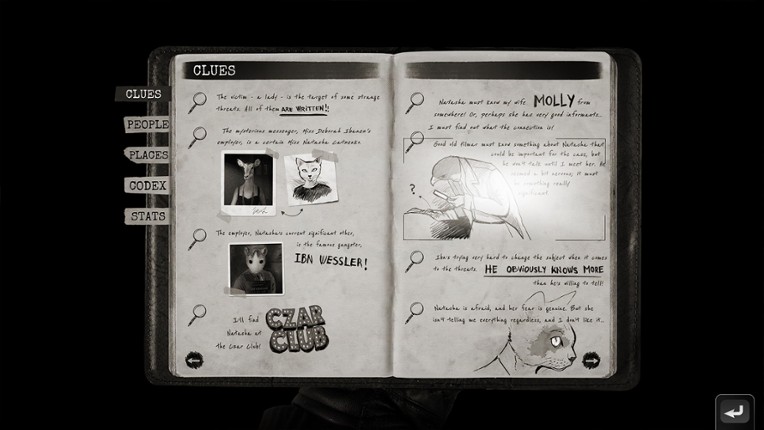 CLUES
CLUES
PEOPLE
PLACES
CODEX
STATS
The victim - a lady - is the target of some strange
threats. All of them ARE WRITTEN!!
The mysterious messenger, Miss Deborah
employer, is a certain Miss Natasha
The employer, Natasha's current significant other,
is the famous gangster,
IBN WESSLER!
I'll find
Natasha at
the Czar Club!
CZAR
CLUB
Natasha must know my wife MOLLY from
somewhere! Or, perhaps she has very good informants...
I must find out what the connection is!
Good old Filmar must know something about Natasha that
could be important for the case, but
he won't talk until I meet her. He
seemed a bit nervous, it must
be something really
significant
?
She's trying very hard to change the subject when it comes
to the threats. HE OBVIOUSLY KNOWS MORE
than he's willing to tell!
Natasha is afraid, and her fear is genuine. But she
isn't telling me everything regardless, and I don't like it...